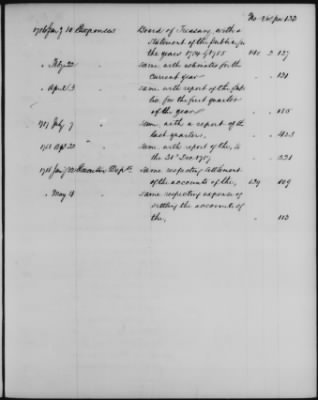 No. Vol. pa. 132
1786 Jan'y 10 Expenses Board of Treasury, with a
Statement of the public for
the years 1784 & 1785 140. 2 127
" Feb'y 22 " Same with estimates for the
current year " 131
" April 3 " Same with report of the
for the first quarter
of the year "
1787 July 7 Same with a report of the
last quarter. " 423
Same with report of the, to
the 31st Dec. "
1785 Same respecting settlement
of the accounts of the, 139 109
" May 4 " Same respecting expense of
settling the accounts of
the, " 113